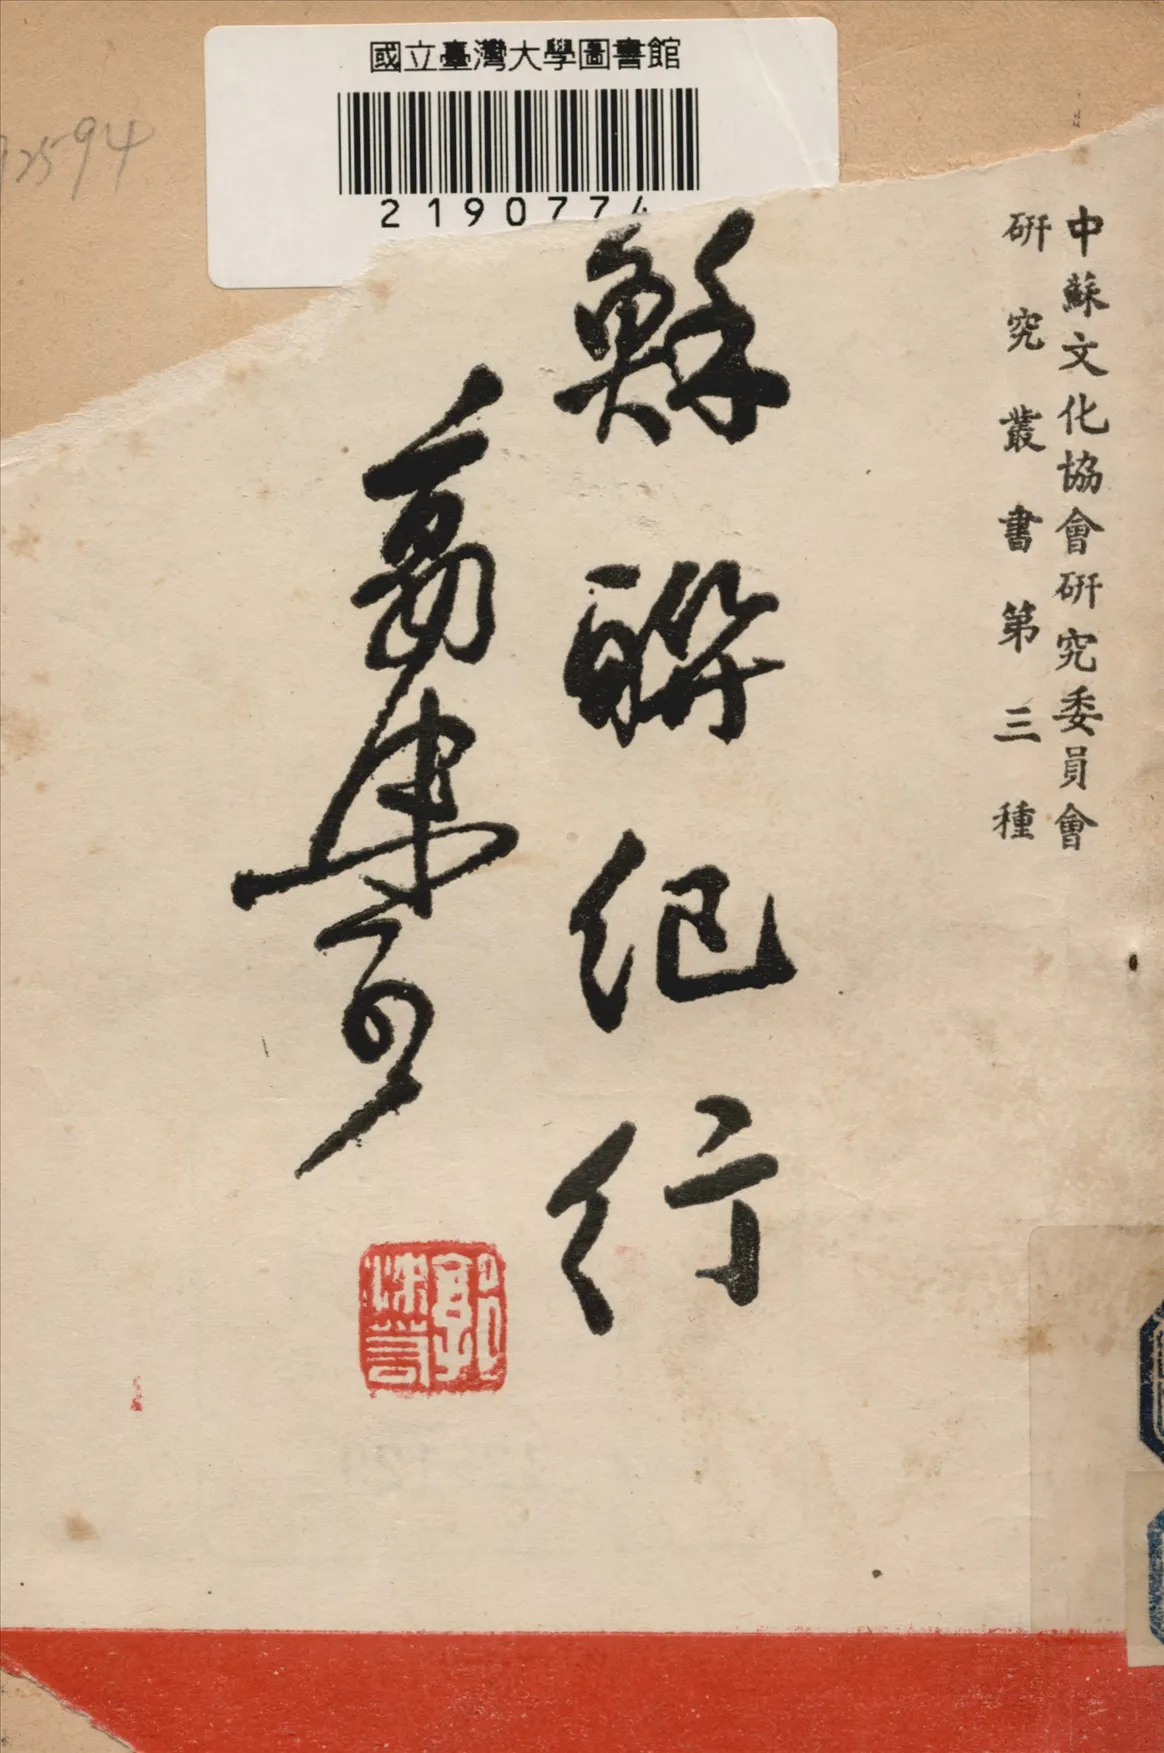 國立臺灣大學圖書館
2190774
中蘇文化協會研究委員會
研究叢書第三種
蘇聯紀行
郭沫若